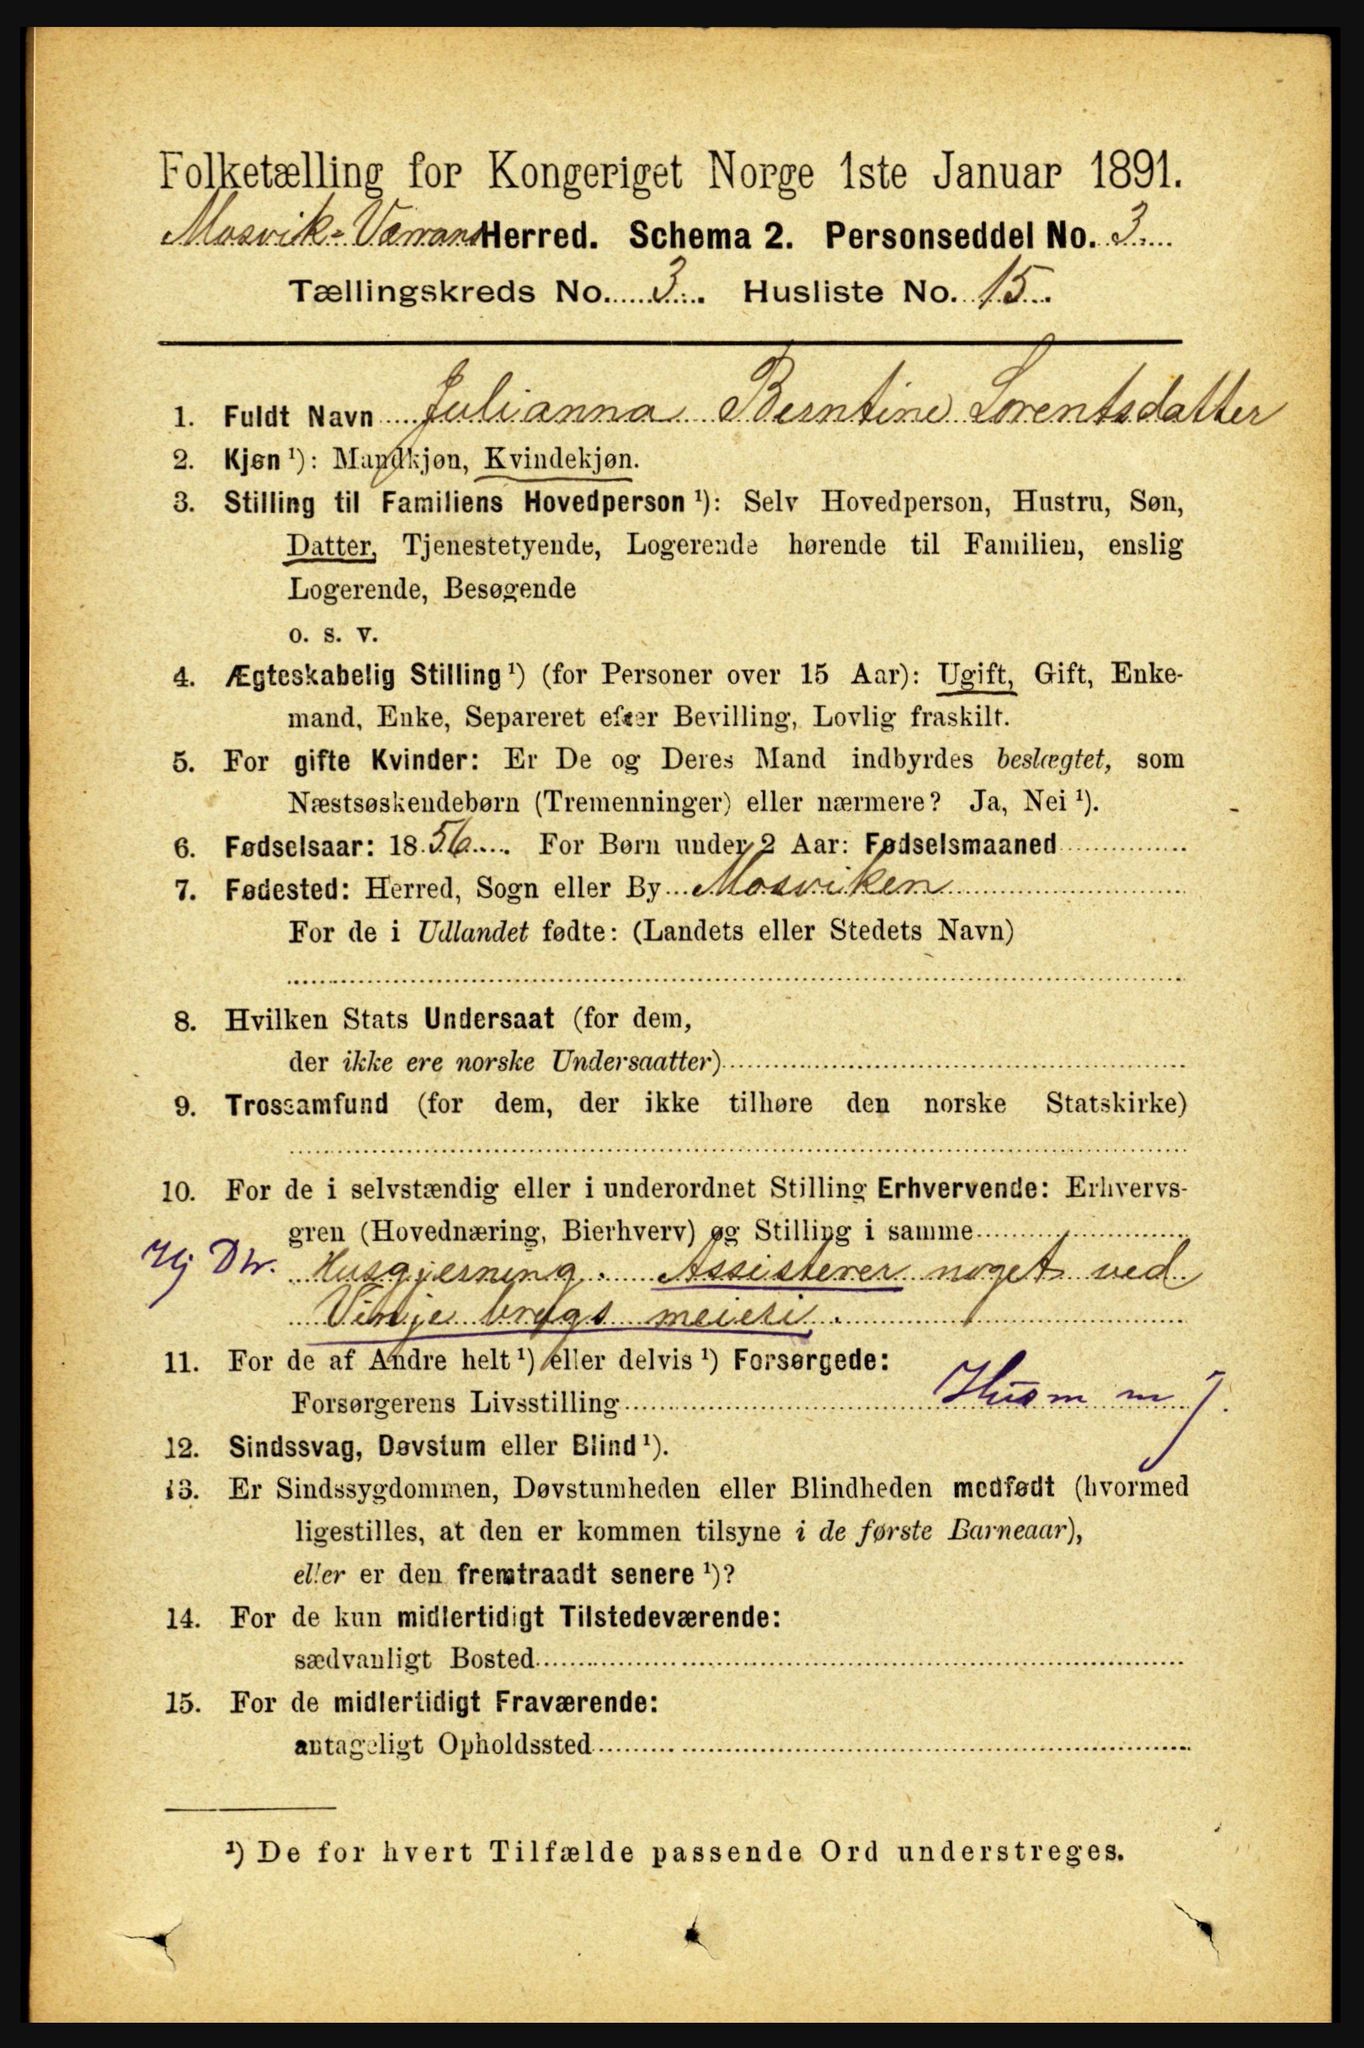 Folketælling for Kongeriget Norge 1ste Januar 1891.
Mosvik-Værrans Herred. Schema 2. Personseddel No. 3.
Tællingskreds No. 3. Husliste No. 15
1. Fuldt Navn Julianna Berntine Lorentsdatter
2. Kjøn ¹): Mandkjøn, Kvindekjøn.
3. Stilling til Familiens Hovedperson ¹): Selv Hovedperson, Hustru, Søn,
Datter, Tjenestetyende, Logerende hørende til Familien, enslig
Logerende, Besøgende
o. s. v.
4. Ægteskabelig Stilling ¹) (for Personer over 15 Aar): Ugift, Gift, Enke-
mand, Enke, Separeret efter Bevilling, Lovlig fraskilt.
5. For gifte Kvinder: Er De og Deres Mand indbyrdes beslægtet, som
Næstsøskendebørn (Tremenninger) eller nærmere? Ja, Nei ¹).
6. Fødselsaar: 1856 For Børn under 2 Aar: Fødselsmaaned
7. Fødested: Herred, Sogn eller By Mosviken
For de i Udlandet fødte: (Landets eller Stedets Navn)
8. Hvilken Stats Undersaat (for dem,
der ikke ere norske Undersaatter)
9. Trossamfund (for dem, der ikke tilhøre den norske Statskirke)
10. For de i selvstændig eller i underordnet Stilling Erhvervende: Erhvervs-
gren (Hovednæring, Bierhverv) og Stilling i samme
Hj Dtr. Husgjerning. Assisterer noget ved
Vinje brugs meieri.
11. For de af Andre helt ¹) eller delvis ¹) Forsørgede:
Forsørgerens Livsstilling Husm m j.
12. Sindssvag, Døvstum eller Blind ¹).
13. Er Sindssygdommen, Døvstumheden eller Blindheden medfødt (hvormed
ligestilles, at den er kommen tilsyne i de første Barneaar),
eller er den fremtraadt senere ¹)?
14. For de kun midlertidigt Tilstedeværende:
sædvanligt Bosted
15. For de midlertidigt Fraværende:
antageligt Opholdssted
¹) De for hvert Tilfælde passende Ord understreges.